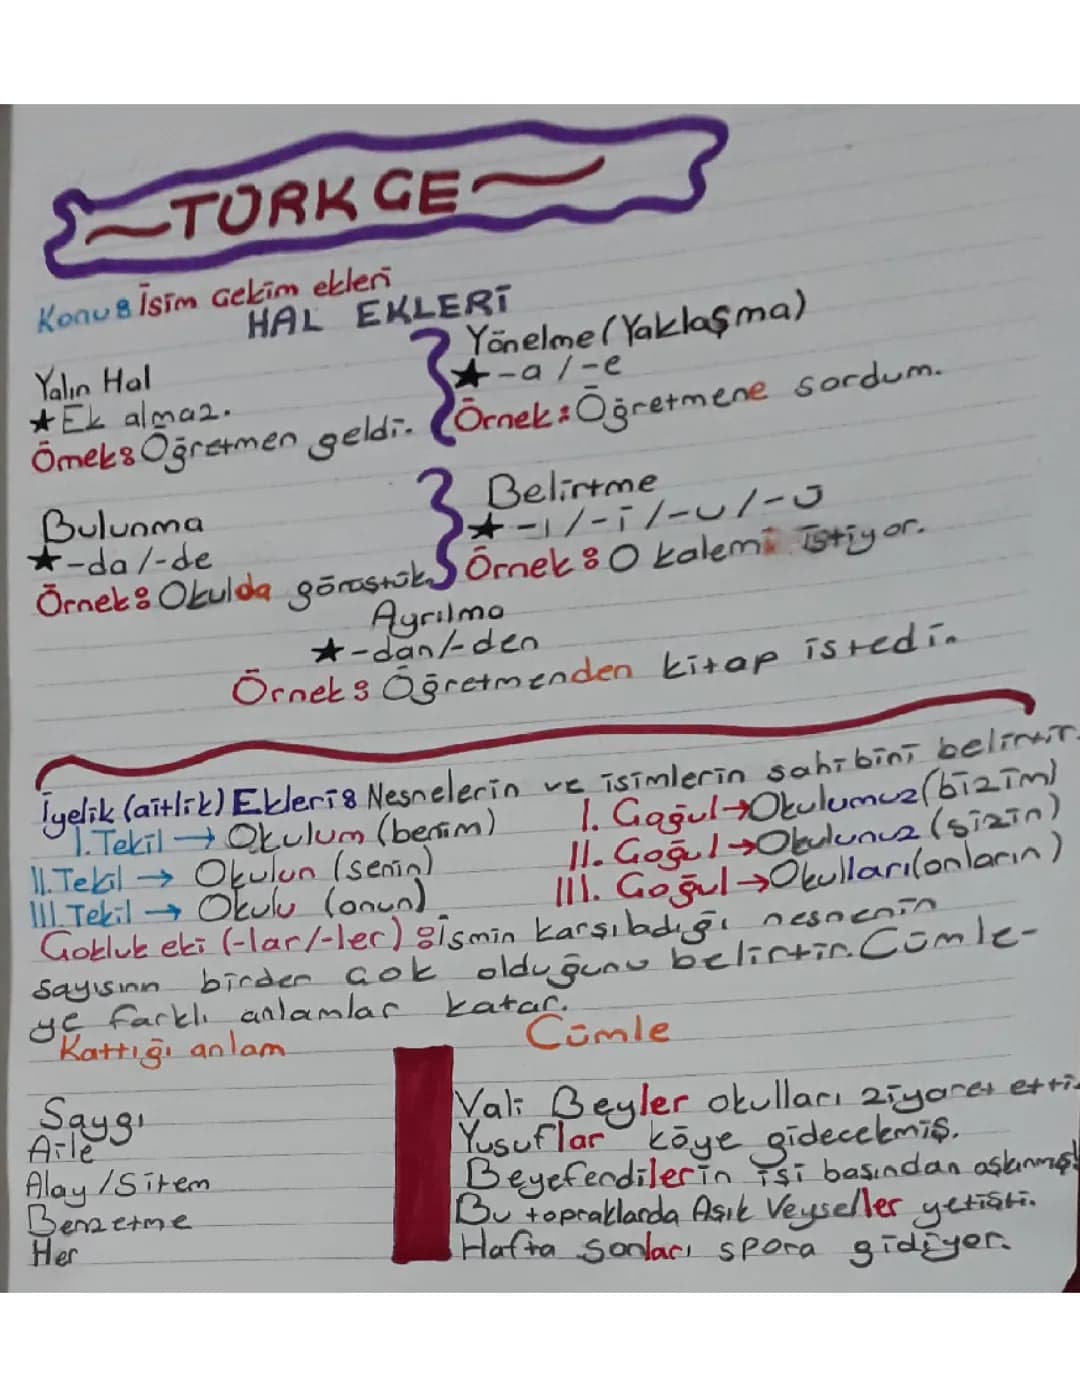 TÜRKÇE
Konu: İsim Çekim ekleri
HAL EKLERİ
Yalın Hal
★Ek almaz.
Örnek: Öğretmen geldi.
Yönelme (Yaklaşma)
★-a / -e
Örnek: Öğretmene sordum.
Bulunma
★-da/-de
Örnek: Okulda görüştük.
Belirtme
★-ı/-i/-u/-ü
Örnek: O kalemi istiyor.
Ayrılma
★-dan/-den
Örnek: Öğretmenden kitap istedi.
İyelik (aitlik) Ekleri: Nesnelerin ve isimlerin sahibini belirtir.
I. Tekil → Okulum (benim)
II. Tekil → Okulun (senin)
III. Tekil → Okulu (onun)
I. Çoğul → Okulumuz (bizim)
II. Çoğul → Okulunuz (sizin)
III. Çoğul → Okulları (onların)
Çokluk eki (-lar/-ler): İsmin karşıladığı nesnenin
sayısının birden çok olduğunu belirtir. Cümle-
ye farklı anlamlar katar.
Kattığı anlam
Cümle
Saygı
Aile
Alay / Sitem
Benzetme
Her
Vali Beyler okulları ziyaret etti.
Yusuflar köye gidecekmiş.
Beyefendilerin işi başından aşkınmış!
Bu topraklarda Aşık Veyseller yetişti.
Hafta sonları spora gidiyor.